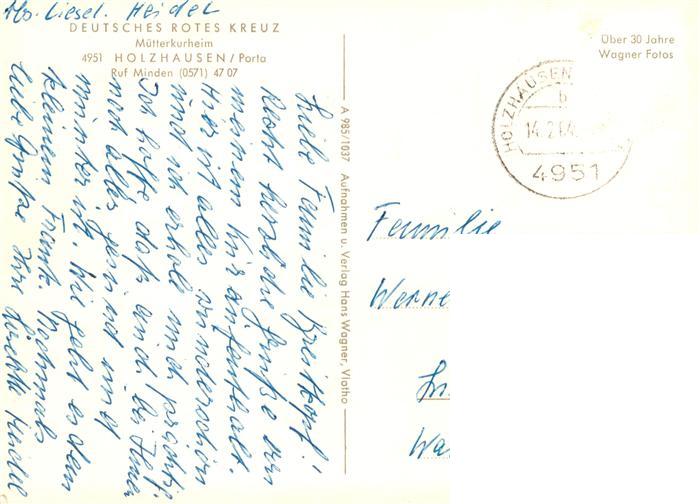 Abs. Liesel. Heidel
DEUTSCHES ROTES KREUZ
Mütterkurheim
4951 HOLZHAUSEN / Porta
Ruf Minden (0571) 47 07
Über 30 Jahre
Wagner Fotos
HOLZHAUSEN
b
14.2.64
4951
A 985/1037 Aufnahmen u. Verlag Hans Wagner, Vlotho
Liebe Familie Breitkopf!
Recht herzliche Grüße von
meinem Kuraufenthalt.
Hier ist alles wunderschön
und ich erhole mich prächtig.
Ich hoffe daß auch bei Ihnen
noch alles gesund und
munter ist. Wie geht es dem
kleinen Frank. Nochmals
liebe Grüße Ihre
Familie
Werne
In
Wa